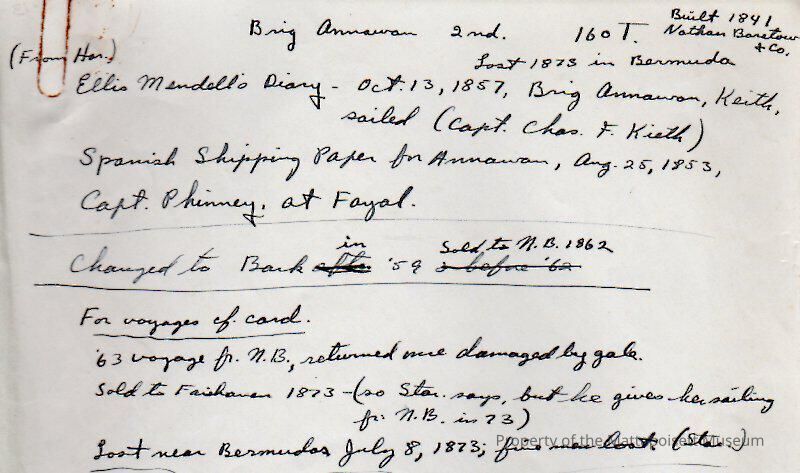 Brig Annawan 2nd. 160 T. Built 1841
Nathan Barstow
& Co.
Lost 1873 in Bermuda
(From Har.)
Ellis Mendell's Diary - Oct. 13, 1857, Brig Annawan, Keith,
sailed (Capt. Chas. F. Kieth)
Spanish Shipping Paper for Annawan, Aug. 25, 1853,
Capt. Phinney, at Fayal.
in Sold to N.B. 1862
Changed to Bark after '59 & before '62
For voyages cf. card.
'63 voyage fr. N.B., returned once damaged by gale.
Sold to Fairhaven 1873 - (so Star. says, but he gives her sailing
fr. N.B. in 73)
Lost near Bermudas July 8, 1873; five men lost. (Star.)
Property of the Mattapoisett Museum